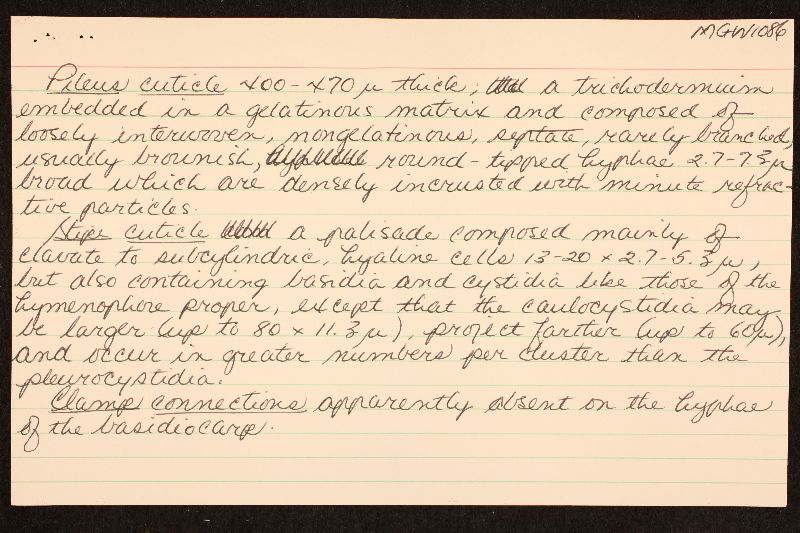 MGW1086
Pileus cuticle 400-470 µ thick; a trichodermium
embedded in a gelatinous matrix and composed of
loosely interwoven, nongelatinous, septate, rarely branched,
usually brownish, round-tipped hyphae 2.7-7.3 µ
broad which are densely incrusted with minute refrac-
tive particles.
Stipe cuticle a palisade composed mainly of
clavate to subcylindric, hyaline cells 13-20 x 2.7-5.3 µ,
but also containing basidia and cystidia like those of the
hymenophore proper, except that the caulocystidia may
be larger (up to 80 x 11.3 µ), project farther (up to 60 µ),
and occur in greater numbers per cluster than the
pleurocystidia.
Clamp connections apparently absent on the hyphae
of the basidiocarp.